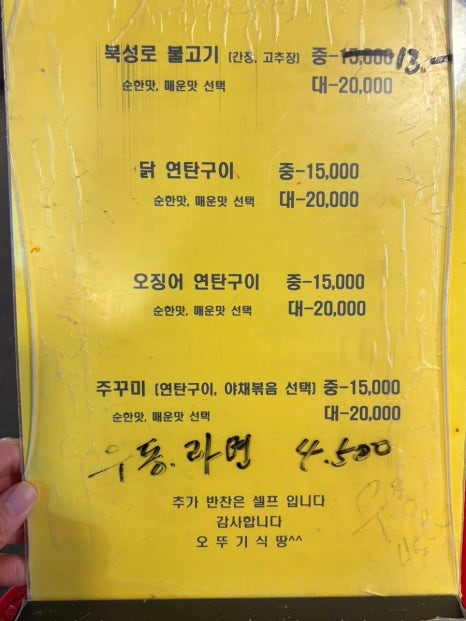 북성로 불고기 (간장, 고추장) 중-15,000 13.-
순한맛, 매운맛 선택 대-20,000
닭 연탄구이 중-15,000
순한맛, 매운맛 선택 대-20,000
오징어 연탄구이 중-15,000
순한맛, 매운맛 선택 대-20,000
주꾸미 (연탄구이, 야채볶음 선택) 중-15,000
순한맛, 매운맛 선택 대-20,000
우동.라면 4.500
추가 반찬은 셀프 입니다
감사합니다
오 뚜 기 식 땅^^